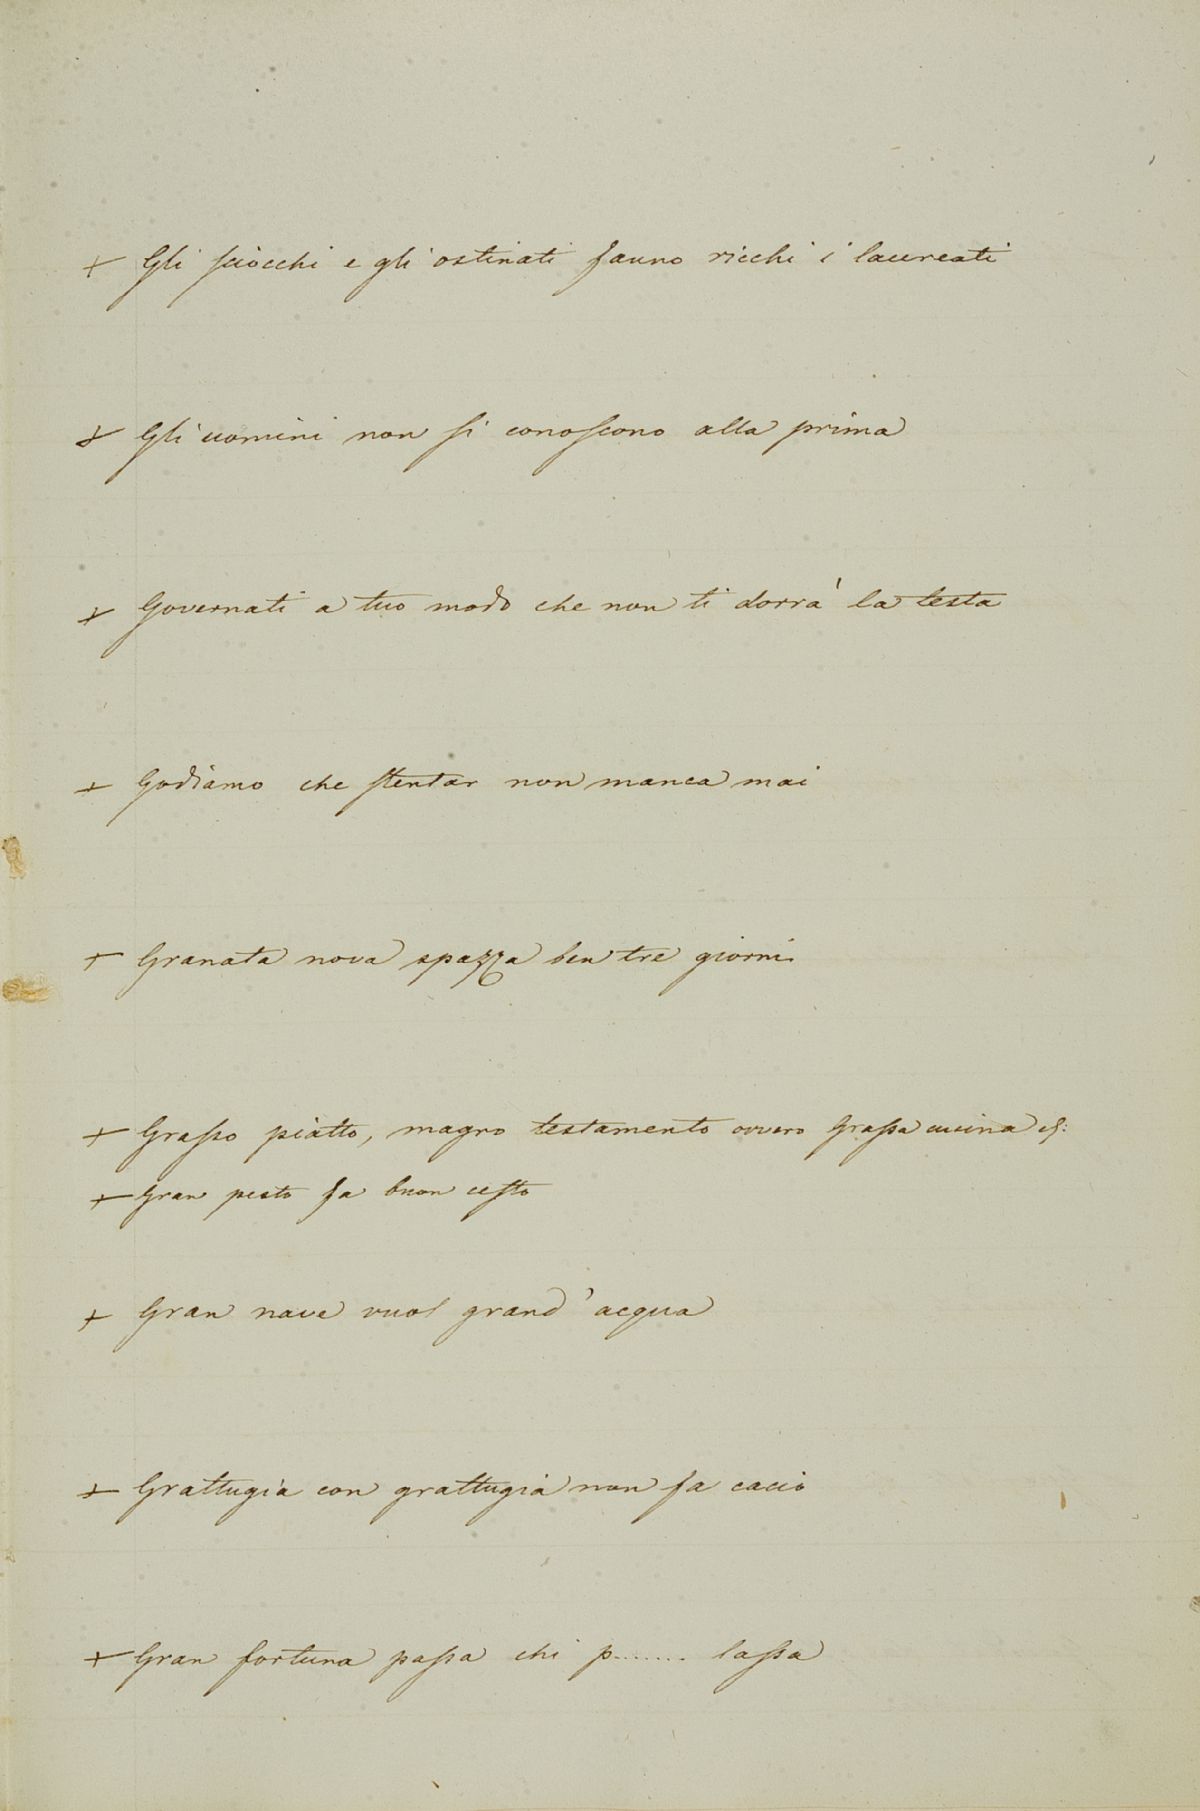 + Gli sciocchi e gli ostinati fanno ricchi i laureati
+ Gli uomini non si conoscono alla prima
+ Governati a tuo modo che non ti dorrà la testa
+ Godiamo che stentar non manca mai
+ Granata nova spazza ben tre giorni
+ Grasso piatto, magro testamento ovvero Grassa cucina
+ Gran pesto fa buon cesto
+ Gran nave vuol grand'acqua
+ Grattugia con grattugia non fa cacio
+ Gran fortuna passa chi p....... lassa